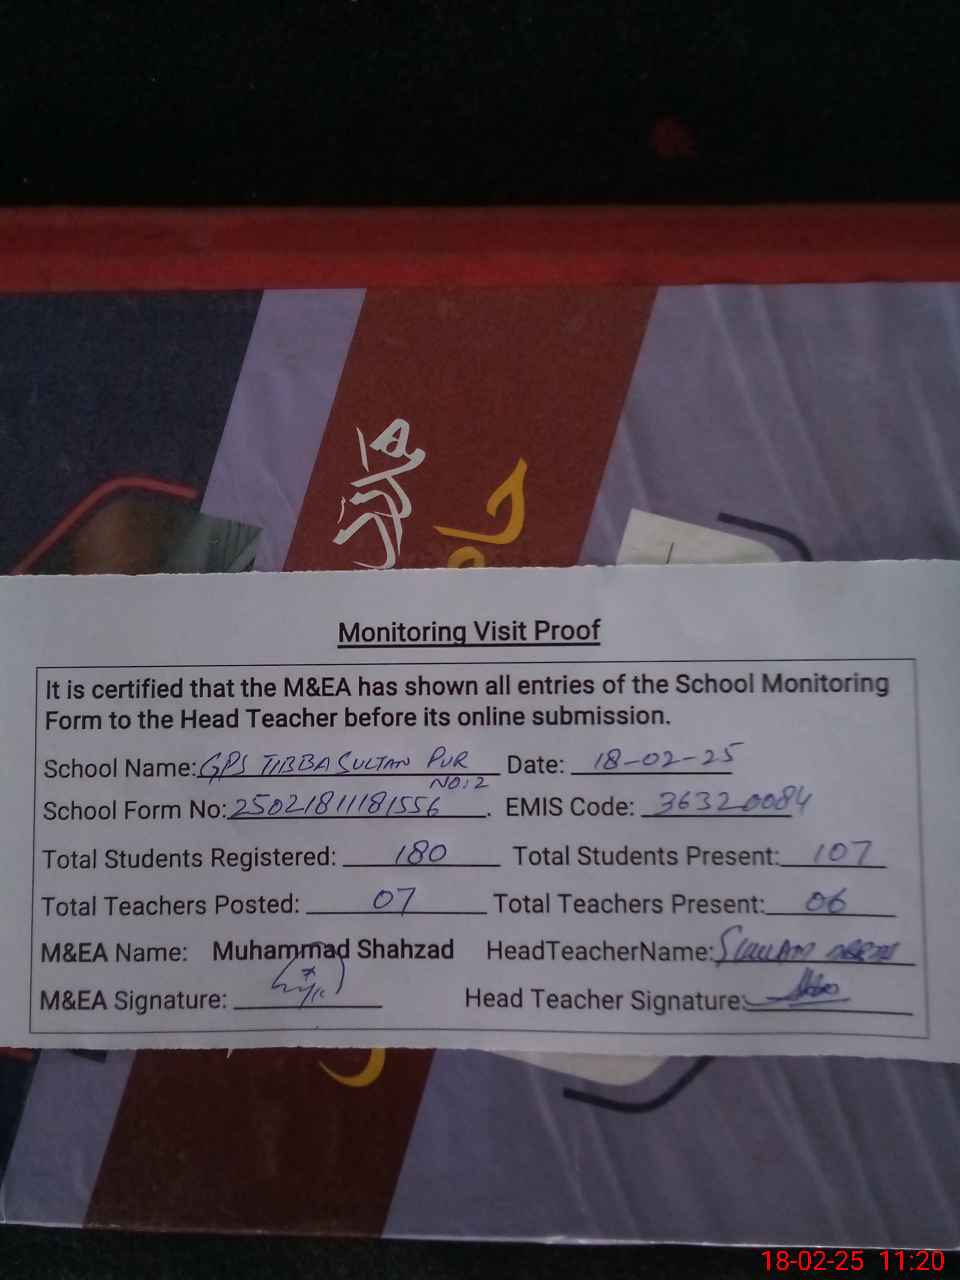 Monitoring Visit Proof
It is certified that the M&EA has shown all entries of the School Monitoring
Form to the Head Teacher before its online submission.
School Name: GPS TIBBA SULTAN PUR NO:2 Date: 18-02-25
School Form No: 25021811181556. EMIS Code: 36320084
Total Students Registered: 180 Total Students Present: 107
Total Teachers Posted: 07 Total Teachers Present: 06
M&EA Name: Muhammad Shahzad HeadTeacherName:
M&EA Signature: Head Teacher Signature:
18-02-25 11:20